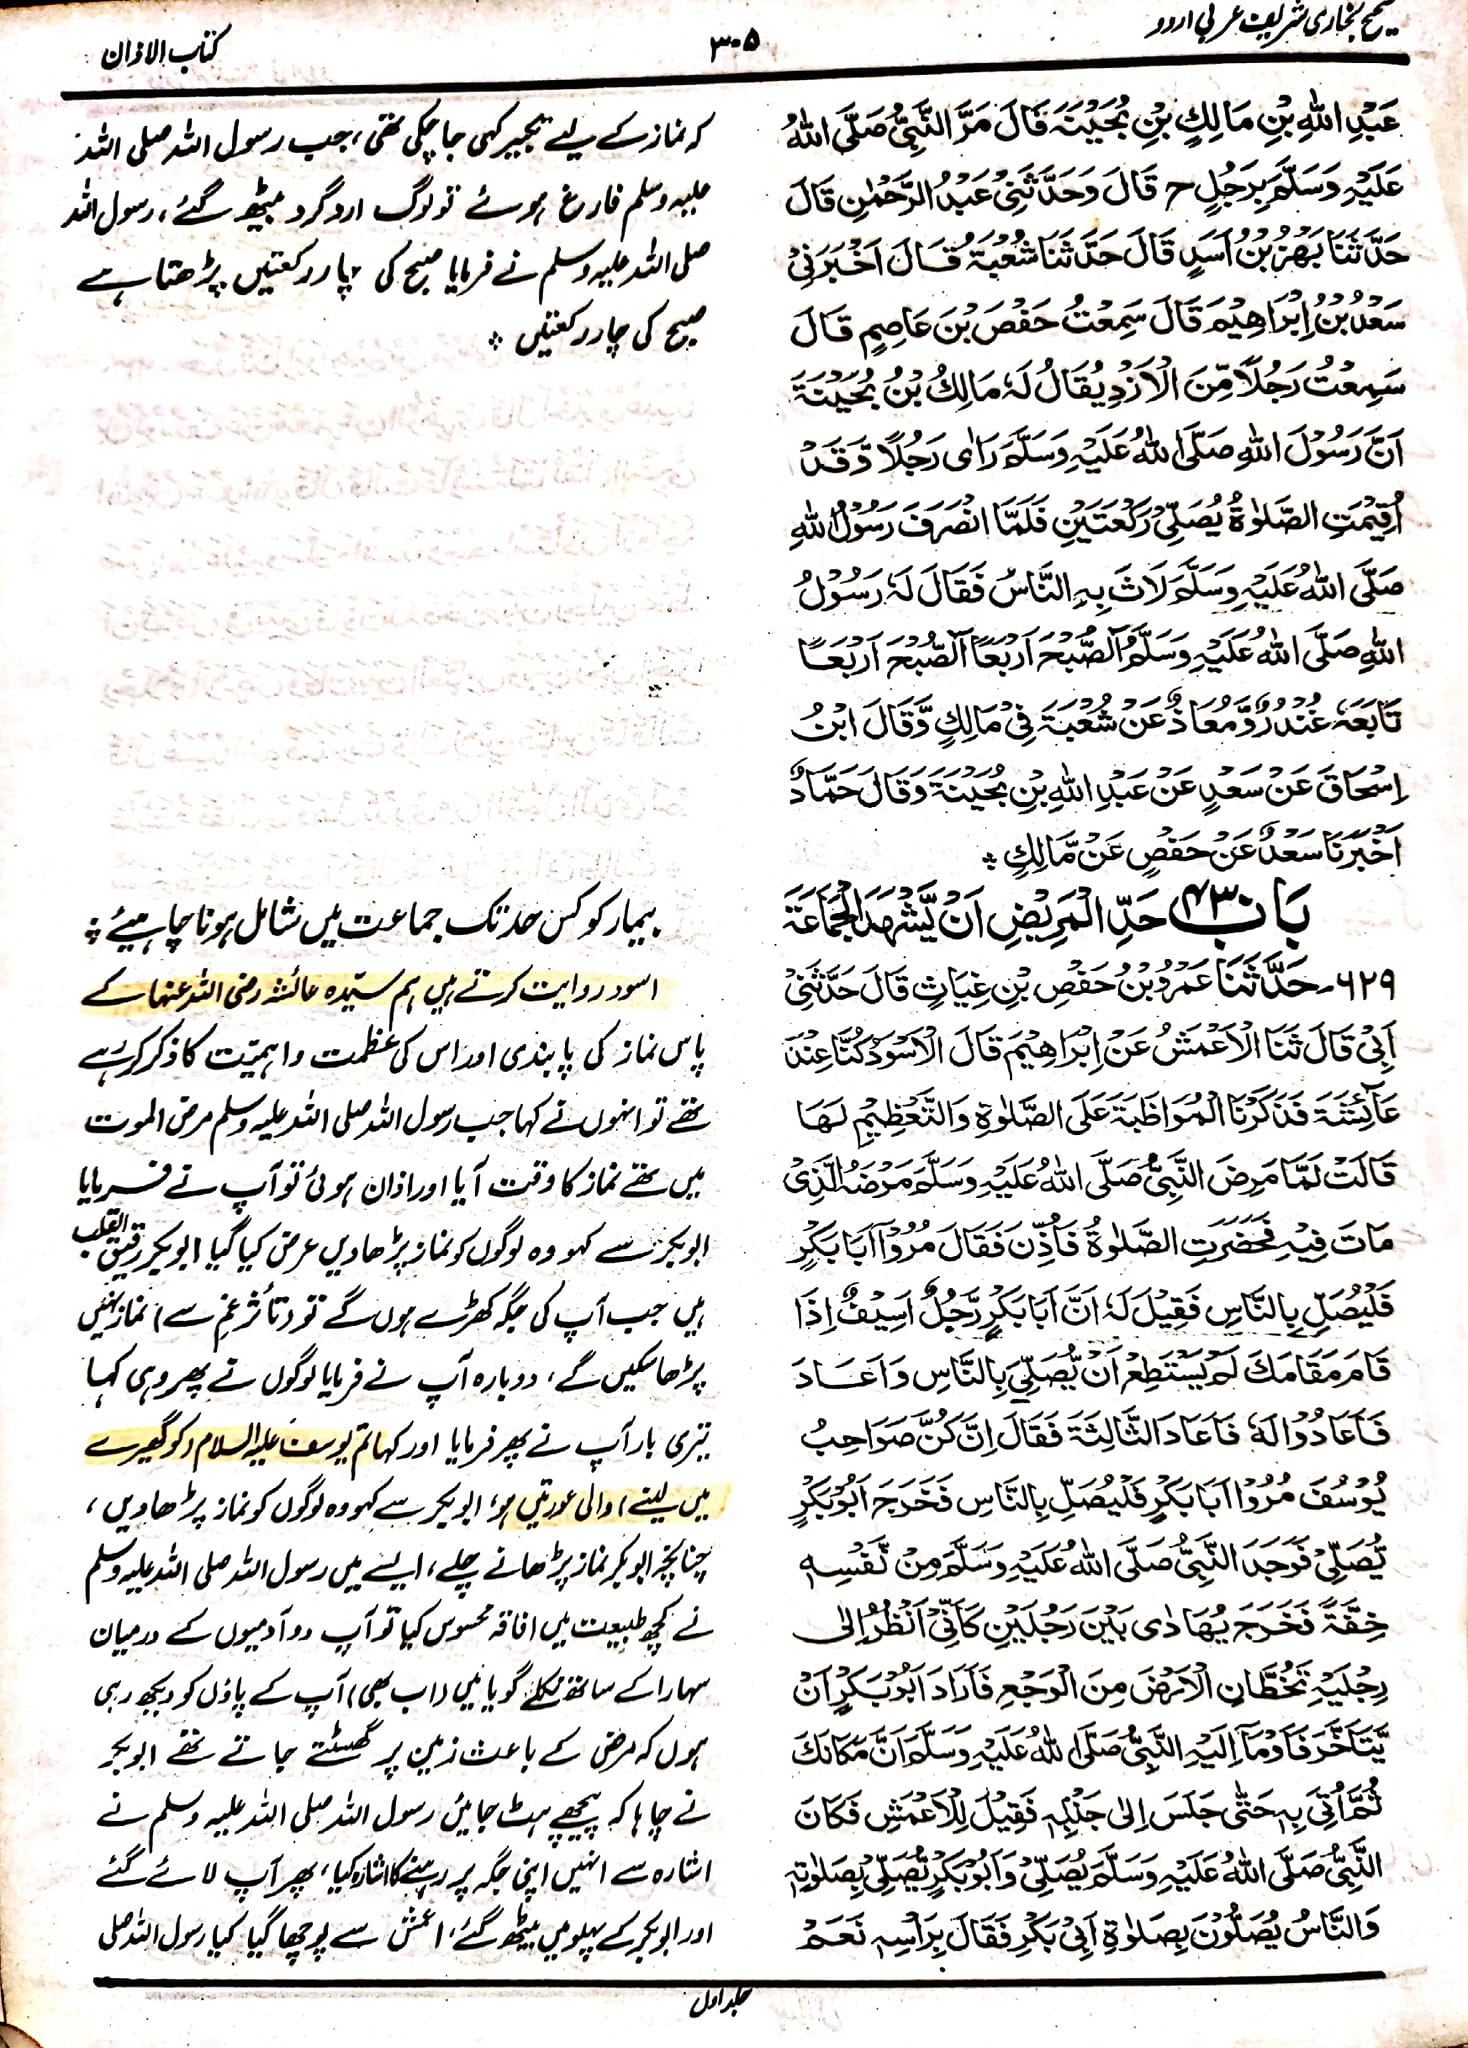 صحیح بخاری شریف عربی اردو
۳۰۵
کتاب الاذان
عَبْدِ اللهِ بْنِ مَالِكِ بْنِ بُحَيْنَةَ قَالَ مَرَّ النَّبِيُّ صَلَّى اللهُ
عَلَيْهِ وَسَلَّمَ بِرَجُلٍ ح قَالَ وَحَدَّثَنِيْ عَبْدُ الرَّحْمٰنِ قَالَ
حَدَّثَنَا بَهْزُ بْنُ اَسَدٍ قَالَ حَدَّثَنَا شُعْبَةُ قَالَ اَخْبَرَنِيْ
سَعْدُ بْنُ اِبْرَاهِيْمَ قَالَ سَمِعْتُ حَفْصَ بْنَ عَاصِمٍ قَالَ
سَمِعْتُ رَجُلًا مِّنَ الْاَزْدِ يُقَالُ لَهٗ مَالِكُ بْنُ بُحَيْنَةَ
اَنَّ رَسُوْلَ اللهِ صَلَّى اللهُ عَلَيْهِ وَسَلَّمَ رَاٰى رَجُلًا وَّقَدْ
اُقِيْمَتِ الصَّلٰوةُ يُصَلِّيْ رَكْعَتَيْنِ فَلَمَّا انْصَرَفَ رَسُوْلُ اللهِ
صَلَّى اللهُ عَلَيْهِ وَسَلَّمَ لَاثَ بِهِ النَّاسُ فَقَالَ لَهٗ رَسُوْلُ
اللهِ صَلَّى اللهُ عَلَيْهِ وَسَلَّمَ آلصُّبْحَ اَرْبَعًا آلصُّبْحَ اَرْبَعًا
تَابَعَهٗ غُنْدُرٌ وَّمُعَاذٌ عَنْ شُعْبَةَ فِيْ مَالِكٍ وَّقَالَ ابْنُ
اِسْحَاقَ عَنْ سَعْدٍ عَنْ عَبْدِ اللهِ بْنِ بُحَيْنَةَ وَقَالَ حَمَّادٌ
اَخْبَرَنَا سَعْدٌ عَنْ حَفْصٍ عَنْ مَّالِكٍ ؞
بَاب ۴۳۰ حَدِّ الْمَرِيْضِ اَنْ يَّشْهَدَ الْجَمَاعَةَ
۶۲۹- حَدَّثَنَا عَمْرُو بْنُ حَفْصِ بْنِ غِيَاثٍ قَالَ حَدَّثَنِيْ
اَبِيْ قَالَ ثَنَا الْاَعْمَشُ عَنْ اِبْرَاهِيْمَ قَالَ الْاَسْوَدُ كُنَّا عِنْدَ
عَآئِشَةَ فَذَكَرْنَا الْمُوَاظَبَةَ عَلَى الصَّلٰوةِ وَالتَّعْظِيْمِ لَهَا
قَالَتْ لَمَّا مَرِضَ النَّبِيُّ صَلَّى اللهُ عَلَيْهِ وَسَلَّمَ مَرْضَهُ الَّذِيْ
مَاتَ فِيْهِ فَحَضَرَتِ الصَّلٰوةُ فَاُذِّنَ فَقَالَ مُرُوْا اَبَا بَكْرٍ
فَلْيُصَلِّ بِالنَّاسِ فَقِيْلَ لَهٗ اِنَّ اَبَا بَكْرٍ رَّجُلٌ اَسِيْفٌ اِذَا
قَامَ مَقَامَكَ لَمْ يَسْتَطِعْ اَنْ يُّصَلِّيَ بِالنَّاسِ وَاَعَادَ
فَاَعَادُوْا لَهٗ فَاَعَادَ الثَّالِثَةَ فَقَالَ اِنَّ كُنَّ صَوَاحِبُ
يُوْسُفَ مُرُوْا اَبَا بَكْرٍ فَلْيُصَلِّ بِالنَّاسِ فَخَرَجَ اَبُوْ بَكْرٍ
يُّصَلِّيْ فَوَجَدَ النَّبِيُّ صَلَّى اللهُ عَلَيْهِ وَسَلَّمَ مِنْ نَّفْسِهٖ
خِفَّةً فَخَرَجَ يُهَادٰى بَيْنَ رَجُلَيْنِ كَاَنِّيْ اَنْظُرُ اِلٰى
رِجْلَيْهِ تَخُطَّانِ الْاَرْضَ مِنَ الْوَجَعِ فَاَرَادَ اَبُوْ بَكْرٍ اَنْ
يَّتَاَخَّرَ فَاَوْمَاَ اِلَيْهِ النَّبِيُّ صَلَّى اللهُ عَلَيْهِ وَسَلَّمَ اَنْ مَّكَانَكَ
ثُمَّ اُتِيَ بِهٖ حَتّٰى جَلَسَ اِلٰى جَنْبِهٖ فَقِيْلَ لِلْاَعْمَشِ فَكَانَ
النَّبِيُّ صَلَّى اللهُ عَلَيْهِ وَسَلَّمَ يُصَلِّيْ وَاَبُوْ بَكْرٍ يُّصَلِّيْ بِصَلٰوتِهٖ
وَالنَّاسُ يُصَلُّوْنَ بِصَلٰوةِ اَبِيْ بَكْرٍ فَقَالَ بِرَاْسِهٖ نَعَمْ
کہ نماز کے لیے تکبیر کہی جا چکی تھی، جب رسول اللہ صلی اللہ
علیہ وسلم فارغ ہوئے تو لوگ اردگرد بیٹھ گئے، رسول اللہ
صلی اللہ علیہ وسلم نے فرمایا صبح کی چار رکعتیں پڑھتا ہے
صبح کی چار رکعتیں ؞
بیمار کو کس حد تک جماعت میں شامل ہونا چاہیئے ؞
اسود روایت کرتے ہیں ہم سیّدہ عائشہ رضی اللہ عنہا کے
پاس نماز کی پابندی اور اس کی عظمت و اہمیّت کا ذکر کر رہے
تھے تو انہوں نے کہا جب رسول اللہ صلی اللہ علیہ وسلم مرض الموت
میں تھے نماز کا وقت آیا اور اذان ہوئی تو آپ نے فرمایا
ابوبکر سے کہو وہ لوگوں کو نماز پڑھا دیں عرض کیا گیا ابوبکر رقیق القلب
ہیں جب آپ کی جگہ کھڑے ہوں گے تو (تأثر غم سے) نماز نہیں
پڑھا سکیں گے، دوبارہ آپ نے فرمایا لوگوں نے پھر وہی کہا
تیسری بار آپ نے پھر فرمایا اور کہا تم یوسف علیہ السلام (کو گھیرے
میں لینے) والی عورتیں ہو، ابوبکر سے کہو وہ لوگوں کو نماز پڑھا دیں،
چنانچہ ابوبکر نماز پڑھانے چلے، ایسے میں رسول اللہ صلی اللہ علیہ وسلم
نے کچھ طبیعت میں افاقہ محسوس کیا تو آپ دو آدمیوں کے درمیان
سہارا کے ساتھ نکلے گویا میں (اب بھی) آپ کے پاؤں کو دیکھ رہی
ہوں کہ مرض کے باعث زمین پر گھسٹتے جاتے تھے ابوبکر
نے چاہا کہ پیچھے ہٹ جائیں رسول اللہ صلی اللہ علیہ وسلم نے
اشارہ سے انہیں اپنی جگہ پر رہنے کا اشارہ کیا، پھر آپ لائے گئے
اور ابوبکر کے پہلو میں بیٹھ گئے، اعمش سے پوچھا گیا کیا رسول اللہ صلی
جلد اول